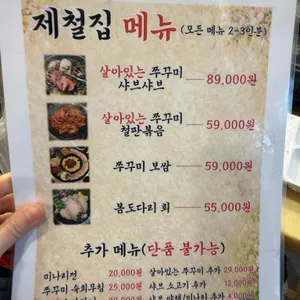 제철집 메뉴 (모든 메뉴 2~3인분)
살아있는 쭈꾸미 샤브샤브 89,000원
살아있는 쭈꾸미 철판볶음 59,000원
쭈꾸미 보쌈 59,000원
봄도다리 회 55,000원
추가 메뉴(단품 불가능)
미나리전 20,000원 살아있는 쭈꾸미 추가 29,000원
쭈꾸미 숙회무침 25,000원 샤브 소고기 추가 12,000원
샤브 야채/미나리 추가